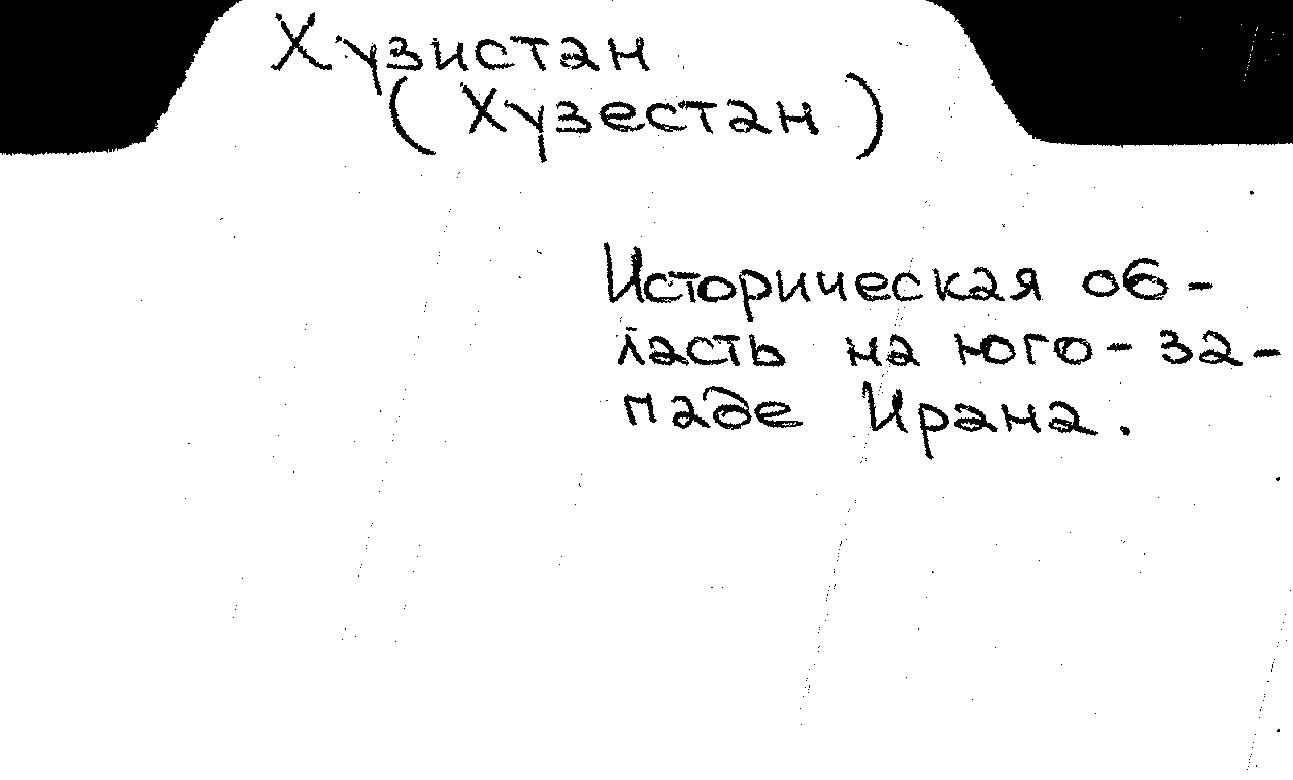 Хузистан
(Хузестан)
Историческая об-
ласть на юго-за-
паде Ирана.